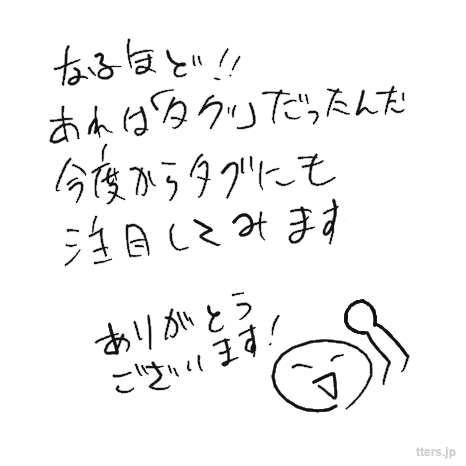 なるほど!!
あれは「タグ」だったんだ
今度からタグにも
注目してみます
ありがとう
ございます!
tters.jp